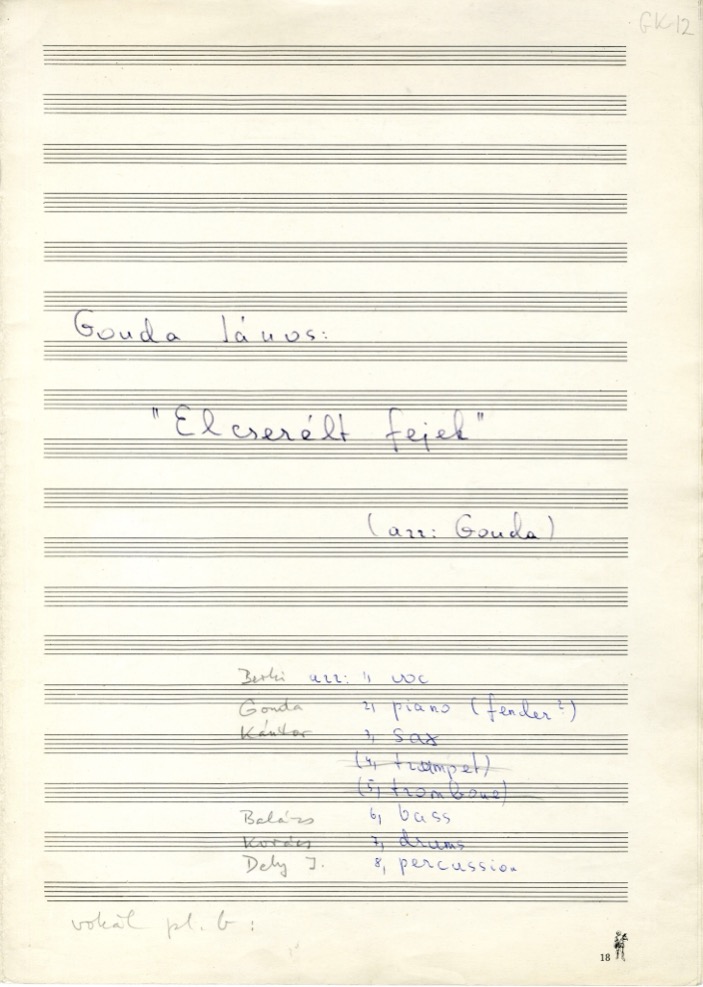 GK-12
Gonda János:
"Elcserélt fejek"
(arr: Gonda)
Berki arr: 1, voc
Gonda 2, piano (fender?)
Kántor 3, sax
(4, trumpet)
(5, trombone)
Balázs 6, bass
Kovács 7, drums
Dely I. 8, percussion
vokál pl. b :
18